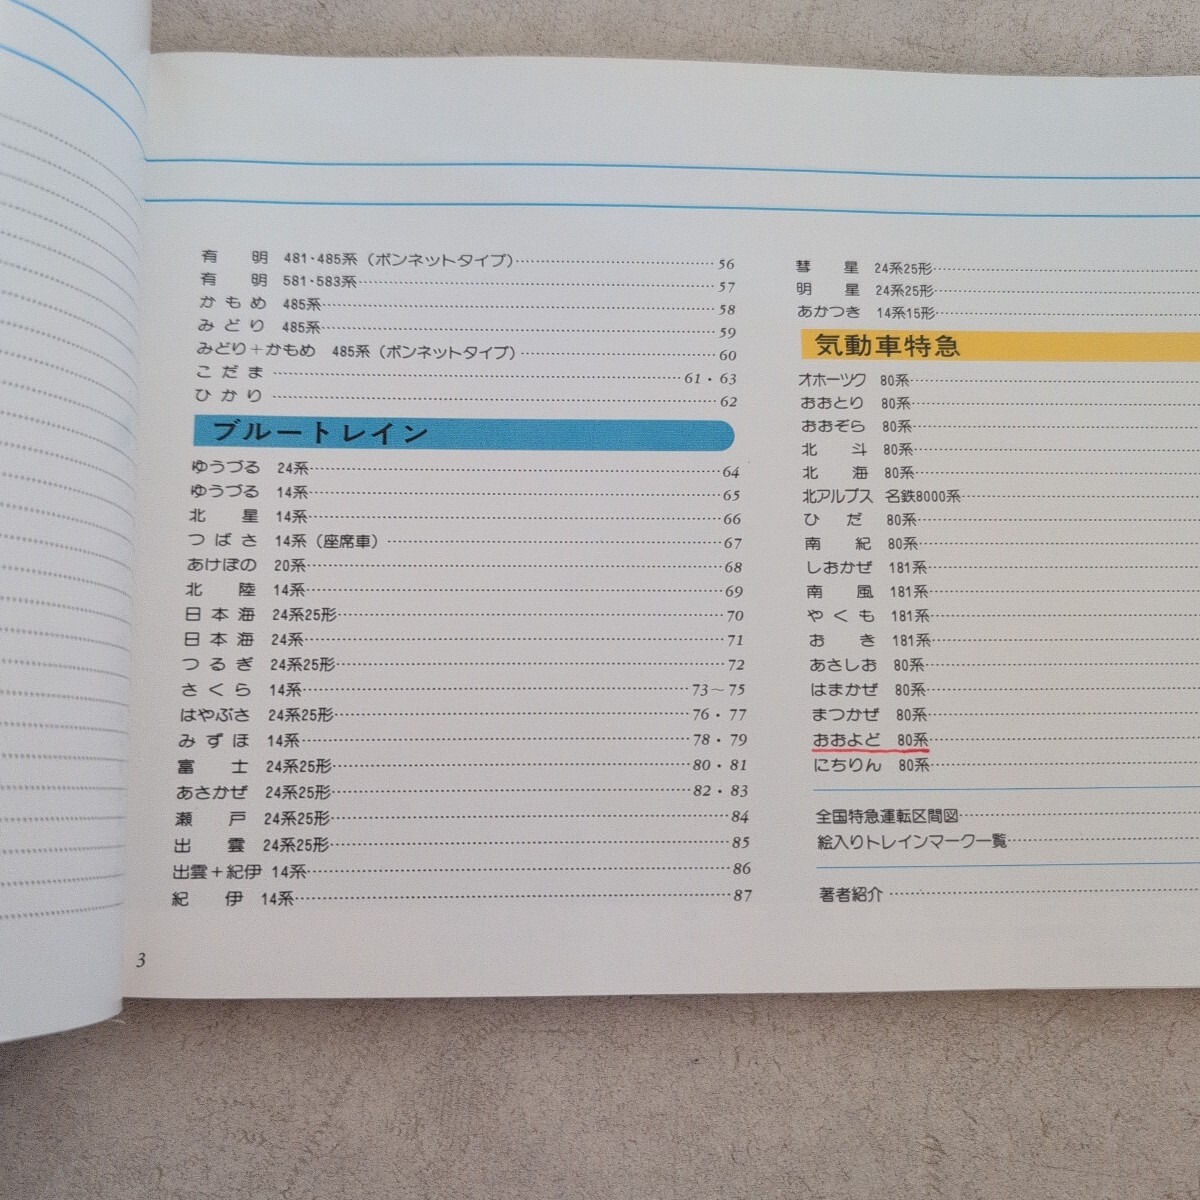 有明 481・485系（ボンネットタイプ）56
有明 581・583系 57
かもめ 485系 58
みどり 485系 59
みどり＋かもめ 485系（ボンネットタイプ）60
こだま 61・63
ひかり 62
ブルートレイン
ゆうづる 24系 64
ゆうづる 14系 65
北星 14系 66
つばさ 14系（座席車）67
あけぼの 20系 68
北陸 14系 69
日本海 24系25形 70
日本海 24系 71
つるぎ 24系25形 72
さくら 14系 73～75
はやぶさ 24系25形 76・77
みずほ 14系 78・79
富士 24系25形 80・81
あさかぜ 24系25形 82・83
瀬戸 24系25形 84
出雲 24系25形 85
出雲＋紀伊 14系 86
紀伊 14系 87
3
彗星 24系25形
明星 24系25形
あかつき 14系15形
気動車特急
オホーツク 80系
おおとり 80系
おおぞら 80系
北斗 80系
北海 80系
北アルプス 名鉄8000系
ひだ 80系
南紀 80系
しおかぜ 181系
南風 181系
やくも 181系
おき 181系
あさしお 80系
はまかぜ 80系
まつかぜ 80系
おおよど 80系
にちりん 80系
全国特急運転区間図
絵入りトレインマーク一覧
著者紹介